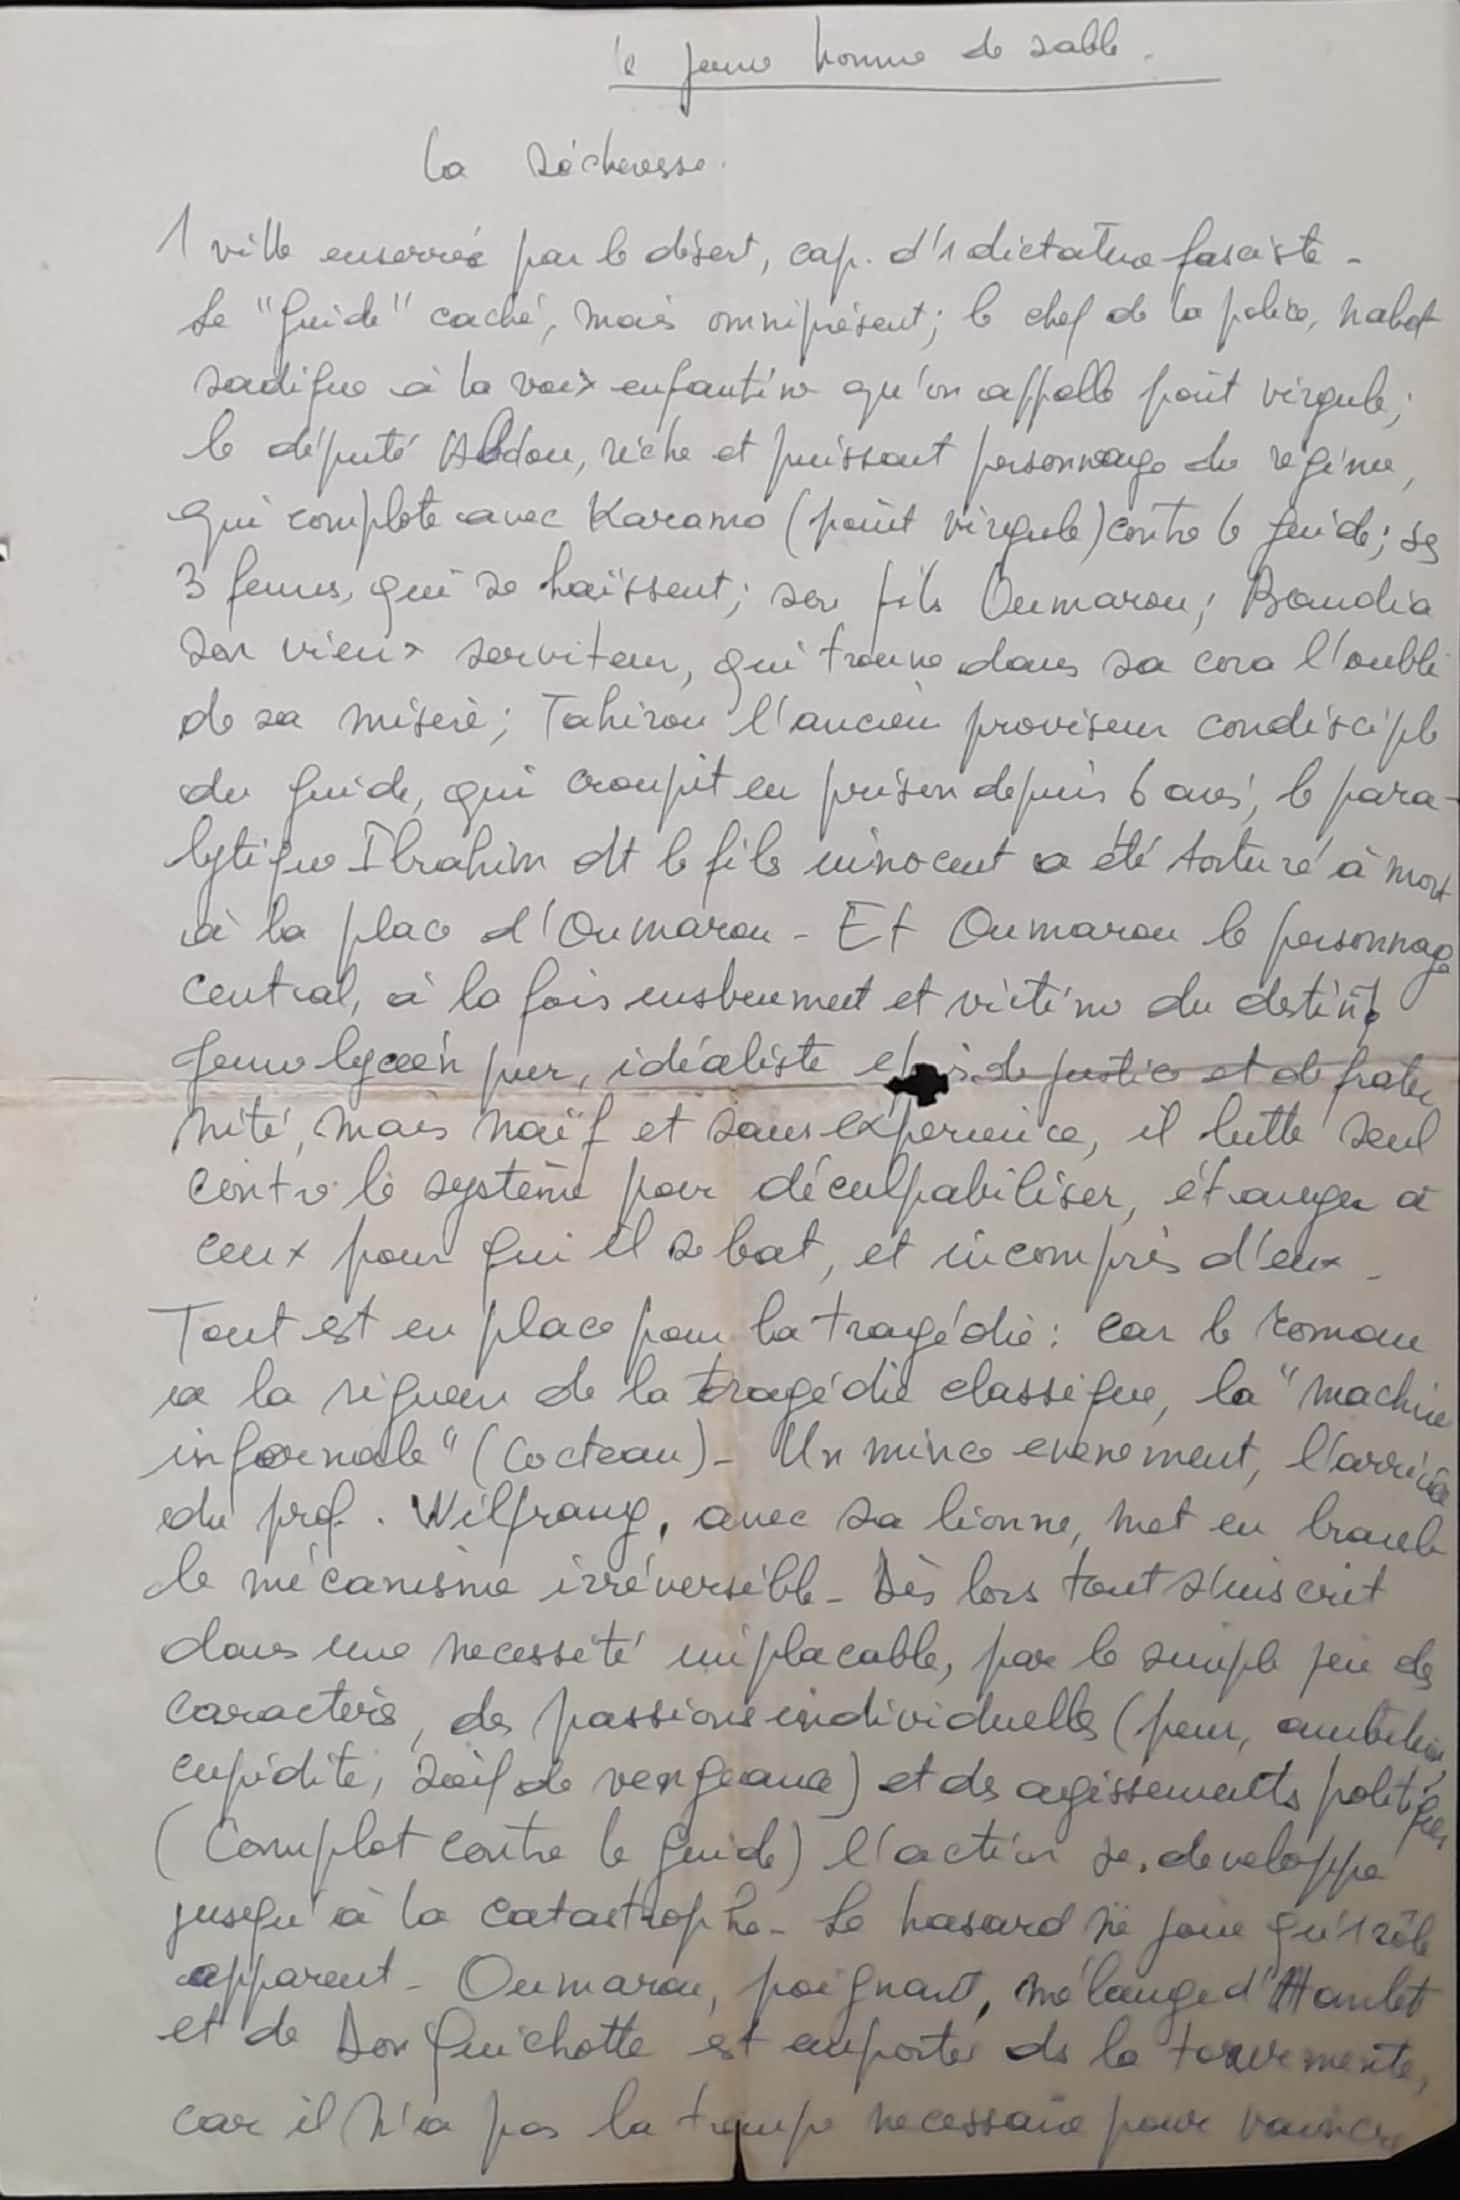 le jeune homme de sable.
La sécheresse.
1 ville enserrée par le désert, cap. d'1 dictature fasciste -
Le "guide" caché, mais omniprésent; le chef de la police, nabot
sadique à la voix enfantine qu'on appelle point virgule;
le député Abdou, riche et puissant personnage du régime,
qui complote avec Karamo (point virgule) contre le guide; ses
3 femmes, qui se haïssent; son fils Oumarou; Bandia
son vieux serviteur, qui trouve dans sa cora l'oubli
de sa misère; Tahirou l'ancien proviseur condisciple
du guide, qui croupit en prison depuis 6 ans; le para-
lytique Ibrahim dt le fils innocent a été torturé à mort
à la place d'Oumarou - Et Oumarou le personnage
central, à la fois instrument et victime du destin;
jeune lycéen pur, idéaliste épris de justice et de frater
nité, mais naïf et sans expérience, il lutte seul
contre le système pour déculpabiliser, étranger à
ceux pour qui il se bat, et incompris d'eux -
Tout est en place pour la tragédie : car le roman
a la rigueur de la tragédie classique, la "machine
infernale" (Cocteau) - Un mince evenement, l'arrivée
du prof. Wilfrang, avec sa lionne, met en branle
le mécanisme irréversible - Dès lors tout s'inscrit
dans une necessité implacable, par le simple jeu des
caractères, des passions individuelles (peur, ambition,
cupidité, soif de vengeance) et des agissements politiques
(Complot contre le guide) l'action se developpe
jusqu'à la catastrophe - Le hasard ne joue qu'1 rôle
apparent - Oumarou, poignant, mélange d'Hamlet
et de Don Quichotte est emporté ds la tourmente,
car il n'a pas la trempe necessaire pour vaincre